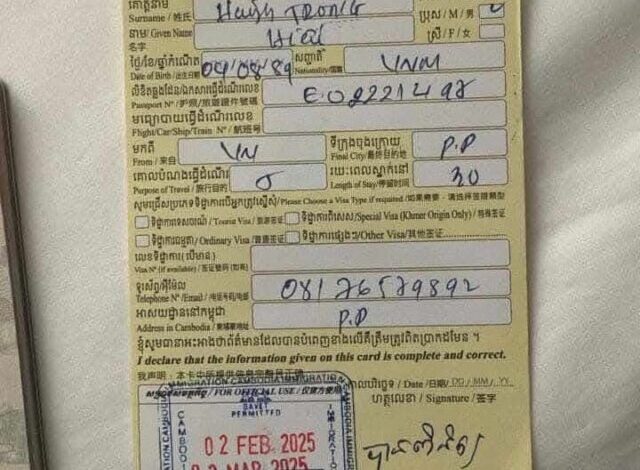 គោត្តនាម
Surname / 姓氏
ប្រុស / M / 男
នាម/ Given Name
名字
ស្រី / F / 女
ថ្ងៃ/ខែ/ឆ្នាំកំណើត
Date of Birth / 出生日期
04/08/89
សញ្ជាតិ
Nationality/国籍
VNM
លិខិតឆ្លងដែន/ឯកសារធ្វើដំណើរលេខ
Passport Nº /护照/旅遊證件號碼
E02221498
មធ្យោបាយធ្វើដំណើរលេខ
Flight/Car/Ship/Train Nº / 航班号
មកពី
From / 来自
VN
ទីក្រុងចុងក្រោយ
Final City/最終目的地
P.P
គោលបំណងធ្វើដំណើរ
Purpose of Travel / 旅行目的
រយៈពេលស្នាក់នៅ
Length of Stay/停留时间
30
សូមជ្រើសរើសប្រភេទទិដ្ឋាការបើអ្នកត្រូវស្នើសុំ/Please Choose a Visa Type if required/如果需要，请选择签證類型
ទិដ្ឋាការទេសចរណ៍ / Tourist Visa / 旅游签证
ទិដ្ឋាការពិសេស/Special Visa (Khmer Origin Only) / 特殊签证
ទិដ្ឋាការធម្មតា/ Ordinary Visa /普通签证
ទិដ្ឋាការផ្សេងៗ/Other Visa/其他签证
លេខទិដ្ឋាការ (បើមាន)
Visa Nº (if available) / 签证號码 (如有)
ទូរស័ព្ទ/អ៊ីម៉ែល
Telephone Nº /Email / 电话号码/电邮
08176579892
អាសយដ្ឋាននៅកម្ពុជា
Address in Cambodia / 柬埔寨地址
P.P
ខ្ញុំសូមធានាអះអាងថាព័ត៌មានដែលបានបំពេញខាងលើគឺត្រឹមត្រូវពិតប្រាកដមែន ។
I declare that the information given on this card is complete and correct.
我声明：本卡中所提供信息完整且正确
FOR OFFICIAL USE / 仅官方使用
កាលបរិច្ឆេទ / Date / 日期/ DD / MM / YY
IMMIGRATION CAMBODIA IMMIGRATION
BAVET
PERMITTED
ហត្ថលេខា / Signature / 签字
02 FEB 2025
MAR 2025